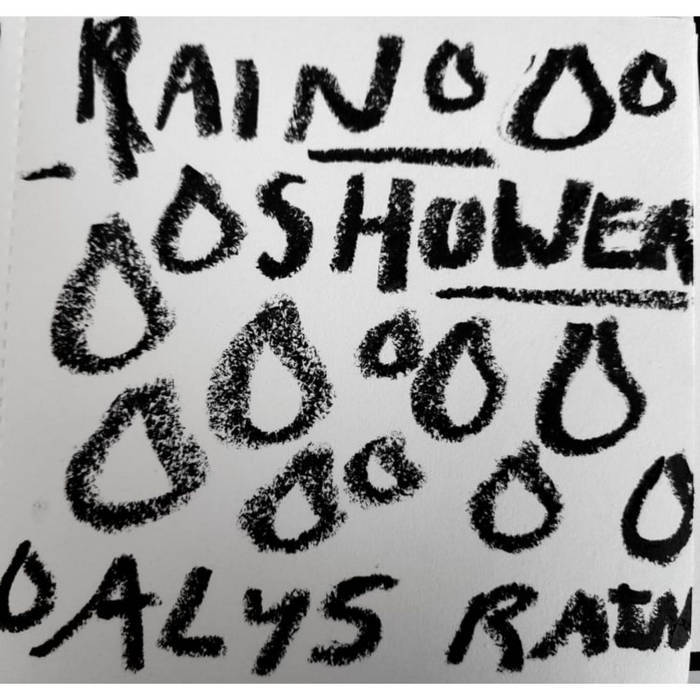 RAIN
SHOWER
ALYS RAIN